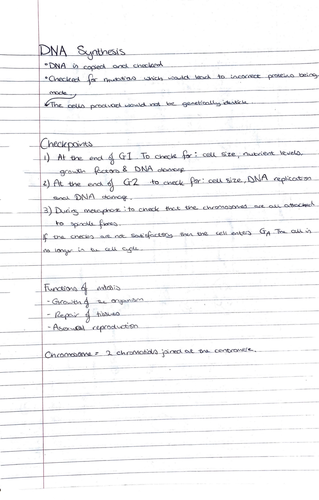 DNA Synthesis
*DNA is copied and checked
*Checked for mutations which would lead to incorrect proteins being
made
The cells produced would not be genetically identical
Checkpoints
1) At the end of G1. To check for: cell size, nutrient levels,
growth factors & DNA damage
2) At the end of G2 to check for: cell size, DNA replication
and DNA damage.
3) During metaphase: to check that the chromosomes are all attached
to spindle fibres.
If the checks are not satisfactory then the cell enters G0. The cell is
no longer in the cell cycle.
Functions of mitosis
- Growth of the organism
- Repair of tissues
- Asexual reproduction
Chromosome = 2 chromatids joined at the centromere.